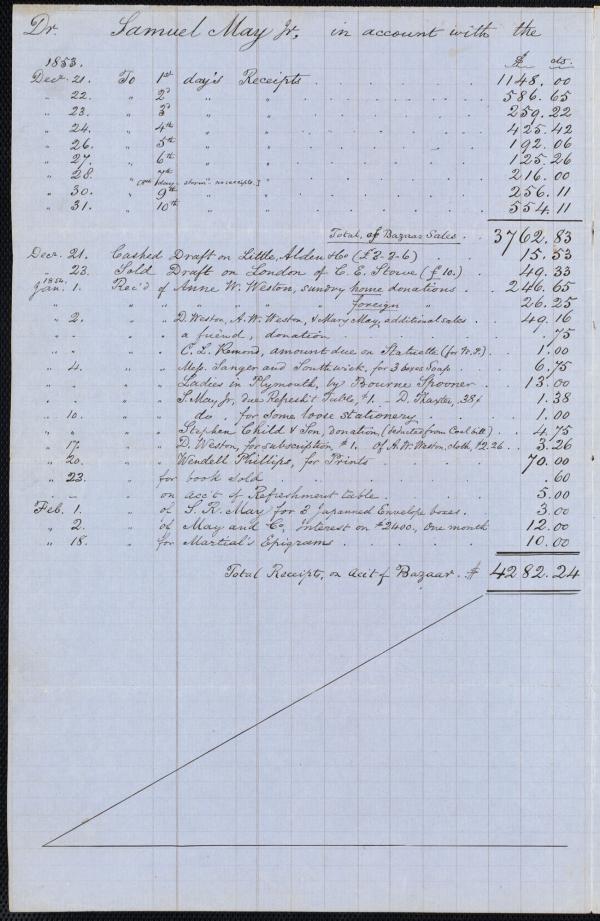 Dr. Samuel May Jr. in account with the
1853. $ cts.
Decr. 21. To 1st day's Receipts . . . 1148.00
" 22. " 2d " " . . . 586.65
" 23. " 3d " " . . . 259.22
" 24. " 4th " " . . . 425.42
" 26. " 5th " " . . . 192.06
" 27. " 6th " " . . . 125.26
" 28. " 7th " " . . . 216.00
" [8th day - storm - no receipts.]
" 30. " 9th " " . . . 256.11
" 31. " 10th " " . . . 554.11
Total of Bazaar Sales . . 3762.83
Decr. 21. Cashed Draft on Little, Alden & Co (£3-2-6) . . 15.53
" 23. Sold Draft on London of C. E. Stowe (£10.) . . 49.33
1854.
Jan. 1. Rec'd of Anne W. Weston, sundry home donations . . 246.65
" " " " " " foreign " . . 26.25
" 2. " " D. Weston, A. W. Weston, & Mary May, additional sales . . 49.16
" " " " a friend, donation . . .75
" " " " C. L. Remond, amount due on Statuette (for W. P.) . . 1.00
" 4. " " Mess. Sanger and Southwick, for 3 boxes Soap . . 6.75
" " " " Ladies in Plymouth, by Bourne Spooner . . 13.00
" " " " S. May, Jr, due Refresh't Table, $1. - D. Thaxter, 38¢ 1.38
" 10. " " do , for some loose stationery . . 1.00
" " " " Stephen Child & Son, donation, (deducted from Coal bill) . . 4.75
" 17. " " D. Weston, for subscription $1. of A. W. Weston, cloth, $2.26 . . 3.26
" 20. " " Wendell Phillips, for Prints . . 70.00
" 23. " for book sold . . .60
" - " on acc't of Refreshment table . . 5.00
Feb. 1. " of S. R. May for 3 Japanned Envelope boxes . . 3.00
" 2. " of May and Co, Interest on $2400., one month 12.00
" 18. " for Martial's Epigrams . . 10.00
Total Receipts, on acc't of Bazaar . $ 4282.24